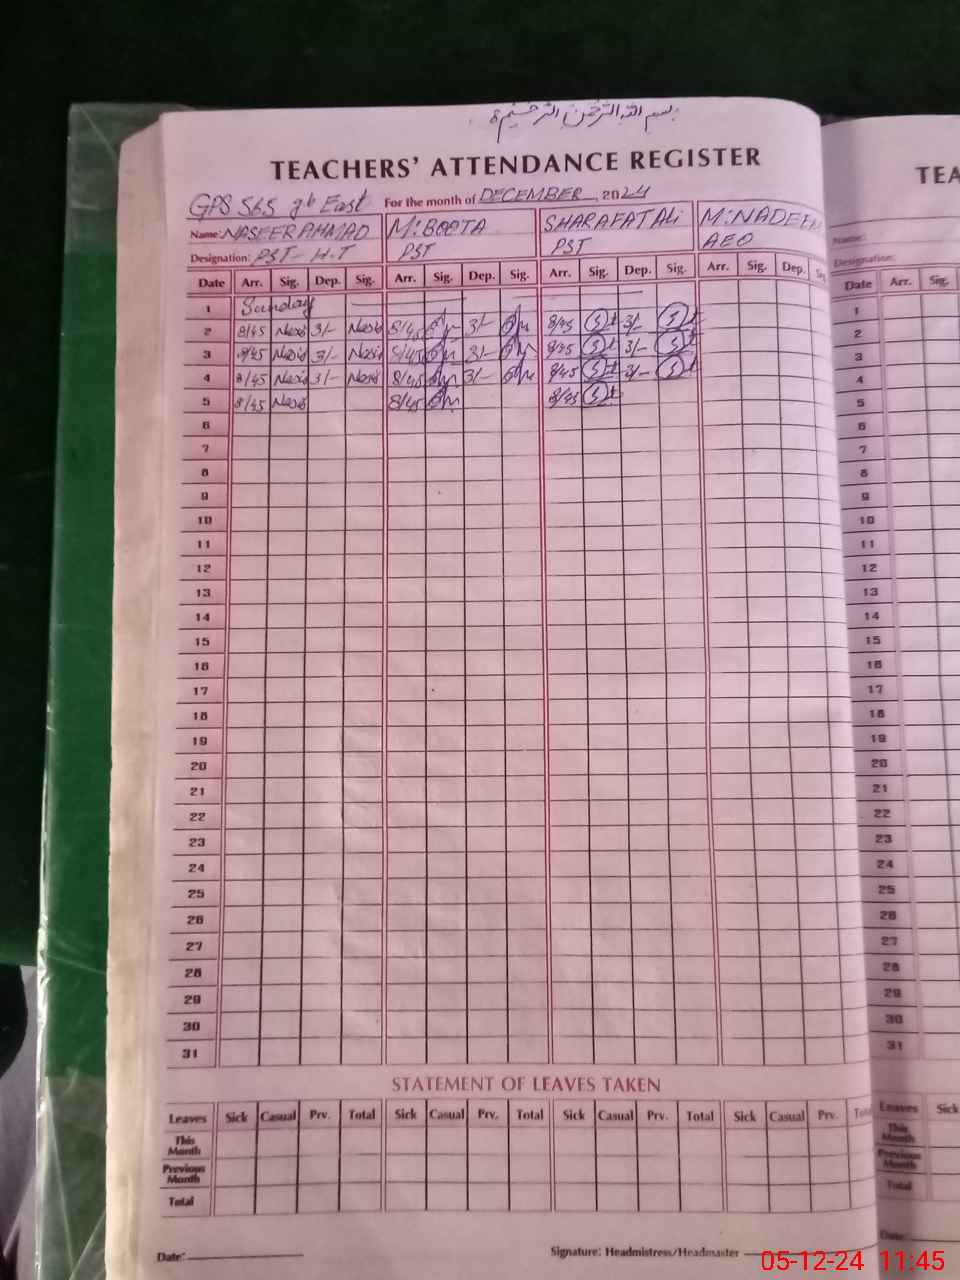 بسم اللہ الرحمن الرحیم
TEACHERS' ATTENDANCE REGISTER
GPS 565 gb East For the month of DECEMBER, 2024
Name: NASEER AHMAD M. BOOTA SHARAFAT ALi M. NADEEM
Designation: PST - H.T PST PST AEO
Date Arr. Sig. Dep. Sig. Arr. Sig. Dep. Sig. Arr. Sig. Dep. Sig. Arr. Sig. Dep. Sig.
1 Sunday
2 8/45 3/- 8/45 3/- 8/45 3/-
3 8/45 3/- 8/45 3/- 8/45 3/-
4 8/45 3/- 8/45 3/- 8/45 3/-
5 8/45 8/45 8/45
6
7
8
9
10
11
12
13
14
15
16
17
18
19
20
21
22
23
24
25
26
27
28
29
30
31
STATEMENT OF LEAVES TAKEN
Leaves Sick Casual Prv. Total Sick Casual Prv. Total Sick Casual Prv. Total Sick Casual Prv. Total
This Month
Previous Month
Total
Date: Signature: Headmistress/Headmaster
TEA
Name:
Designation:
Date Arr. Sig.
1
2
3
4
5
6
7
8
9
10
11
12
13
14
15
16
17
18
19
20
21
22
23
24
25
26
27
28
29
30
31
Leaves Sick
This Month
Previous Month
Total
Date:
05-12-24 11:45